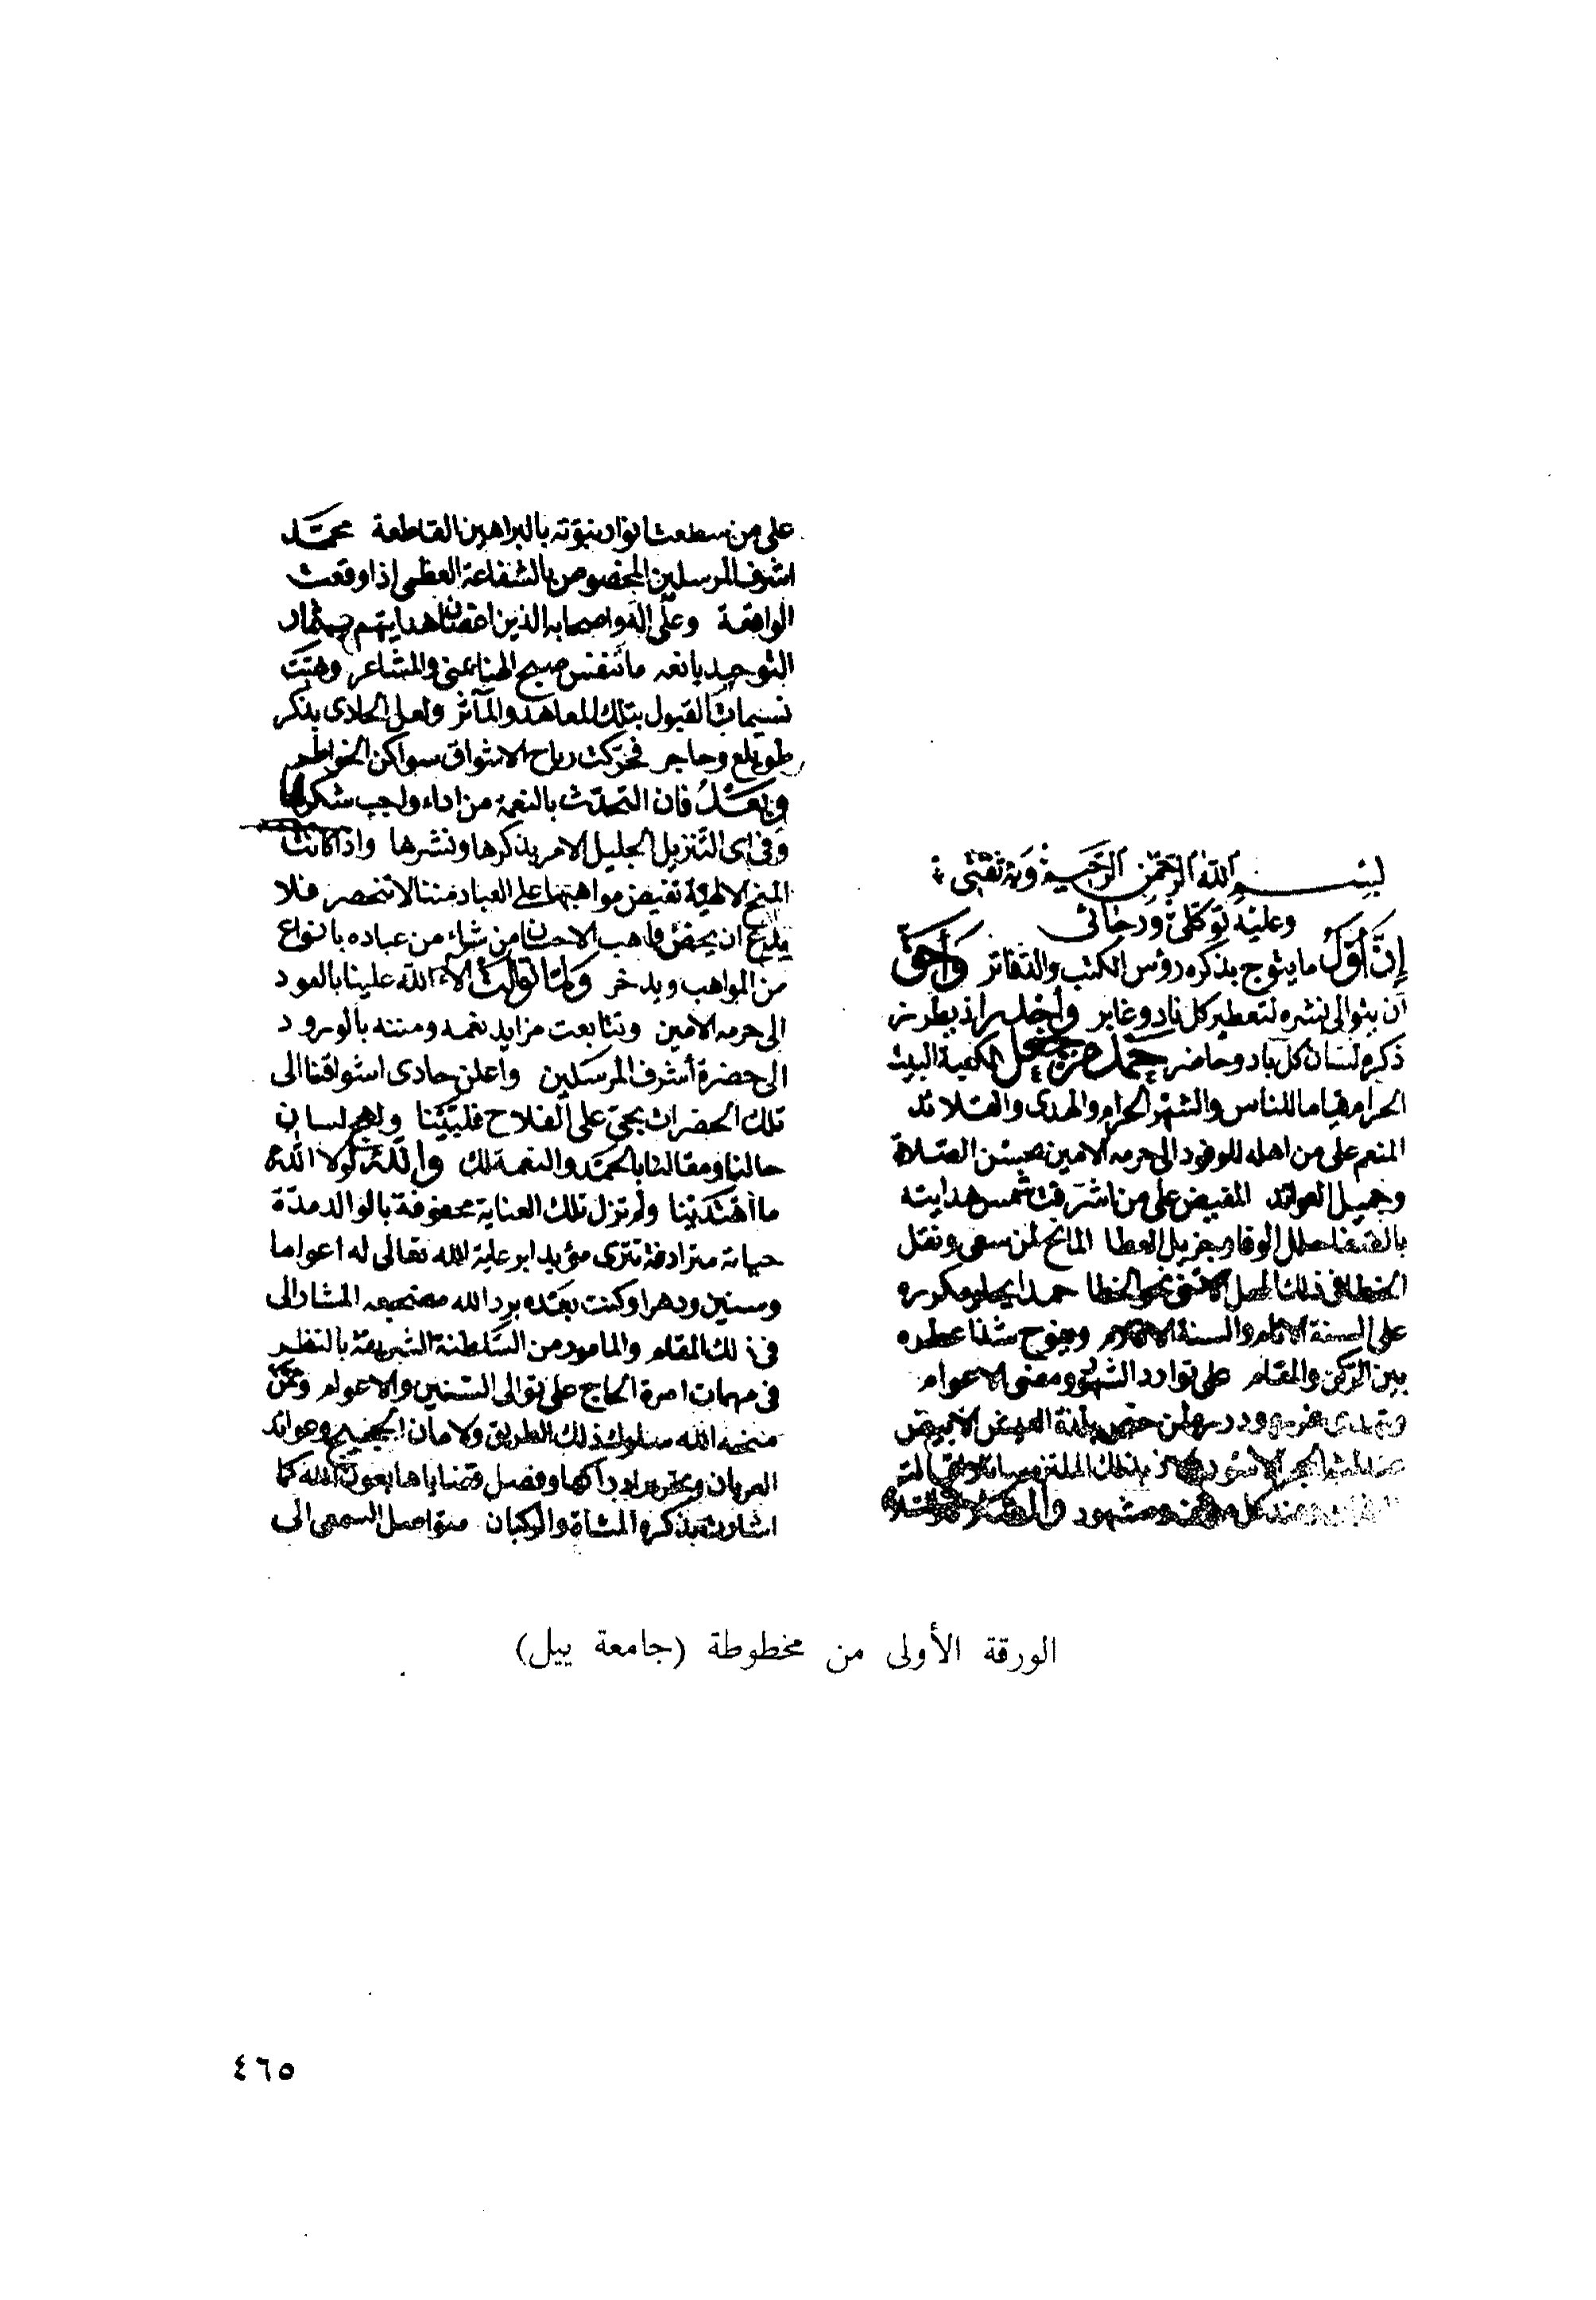 بسم الله الرحمن الرحيم وبه ثقتي
وعليه توكلي ورجائي
إن أول ما يتوج بذكره رؤس الكتب والدفاتر وأحق
أن يتوالى نشره لتعطير كل ناد وغابر وأجل طراز يطرز
ذكره لسان كل باد وحاضر حمد من جعل الكعبة البيت
الحرام قياما للناس والشهر الحرام والهدى والقلائد
المنعم على من اهله للوفود الى حرمه الامين بحسن الصلاة
وجميل العوائد المفيض على من اشرقت شمس هدايته
بالصفا حلل الوفا وجزيل العطا المانح لمن سعى ونقل
الخطا في ذلك المحل الاسنى محو الخطا حمدا يحلو مكرره
على السنة الانام والسنة الاقلام ويفوح شذا عطره
بين الركن والمقام على توارد الشهور ومضى الاعوام
الابيض
الحجر الاسود بذلك الملتزم
كل ومشهود والصلاة والسلام
على من سطعت انوار نبوته بالبراهين القاطعة محمد
اشرف المرسلين المخصوص بالشفاعة العظمى اذا وقعت
الواقعة وعلى اله واصحابه الذين اغصان هدايتهم بثمار
التوحيد يانعه ما تنفس صبح الهنا بمنى والمشاعر وهبت
نسيمات القبول بتلك المعاهد والمآثر ولعل الحادى بذكر
طويلع وحاجر فحركت رياح الاشواق سواكن الخواطر
وبعد فان التحدث بالنعمة من اداء واجب شكرها
وفى اى التنزيل الجليل الامر بذكرها ونشرها واذا كانت
المنح الالهية تفيض مواهبها على العباد مننا لا تنحصر فلا
بدع ان يخص واهب الاحسان من شاء من عباده بانواع
من المواهب ويدخر ولما توالت الاء الله علينا بالعود
الى حرمه الامين وتتابعت مزايد نعمه ومننه بالورود
الى حضرة أشرف المرسلين وأعلن حادى اشواقنا الى
تلك الحضرات بحي على الفلاح فلبينا ولهج لسان
حالنا ومقالنا بالحمد والنعمة لك والله لولا الله
ما أهتدينا ولم تزل تلك العناية محفوفة بالوالد مدة
حياته مترادفة تترى مؤيدا برعاية الله تعالى له اعواما
وسنين ودهرا وكنت بعده برد الله مضجعه المشار الى
فى ذلك المقام والمامور من السلطنة الشريفة بالنظر
فى مهمات امرة الحاج على توالى السنين والاعوام وممن
منحه الله سلوك ذلك الطريق ولامان الحجيج وعوائد
العربان وتحرير ادراكها وفصل قضاياها بعون الله كما
اشارت بذكره المشاة والركبان متواصل السعى الى
الورقة الأولى من مخطوطة (جامعة ييل)
٤٦٥